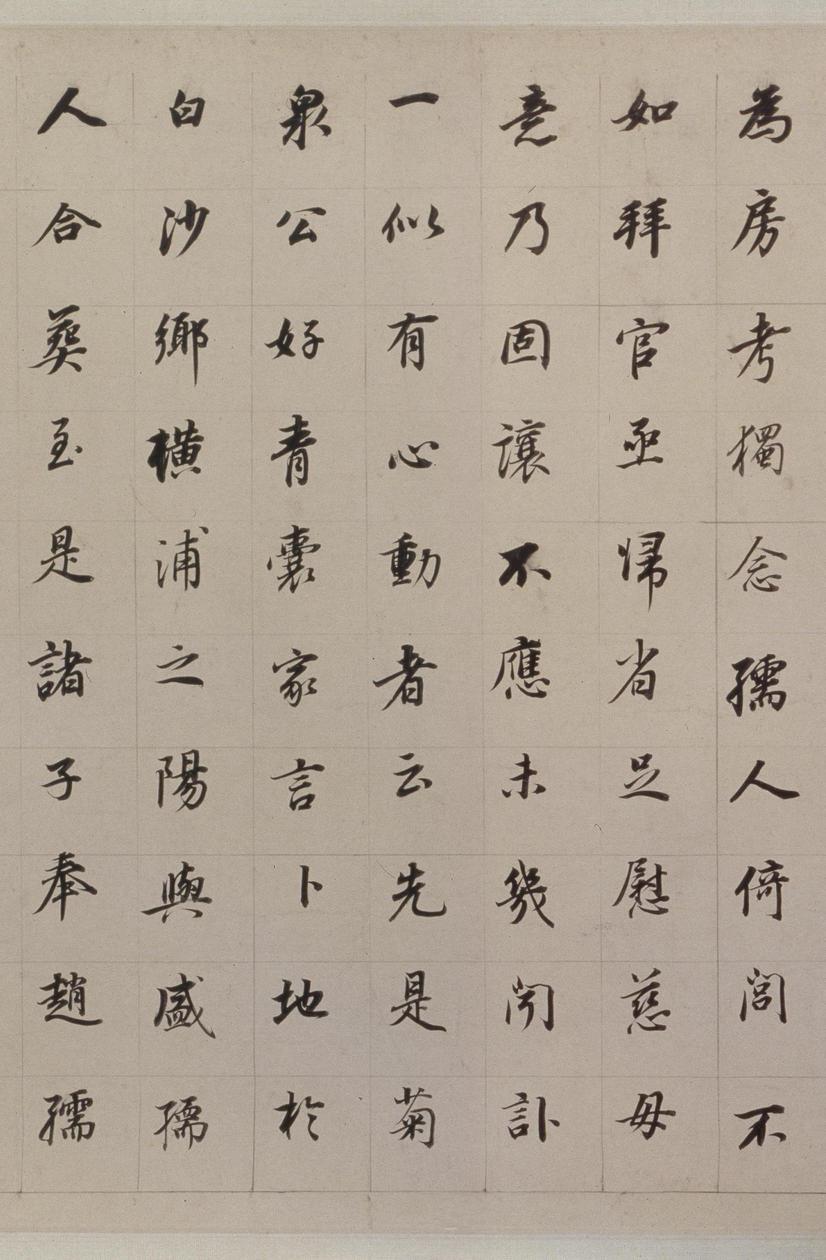 為房考獨念孺人倚閭不
如拜官亟歸省足慰慈母
意乃固讓不應未幾聞訃
一似有心動者云先是菊
泉公好青囊家言卜地於
白沙鄉橫浦之陽與盛孺
人合葬至是諸子奉趙孺